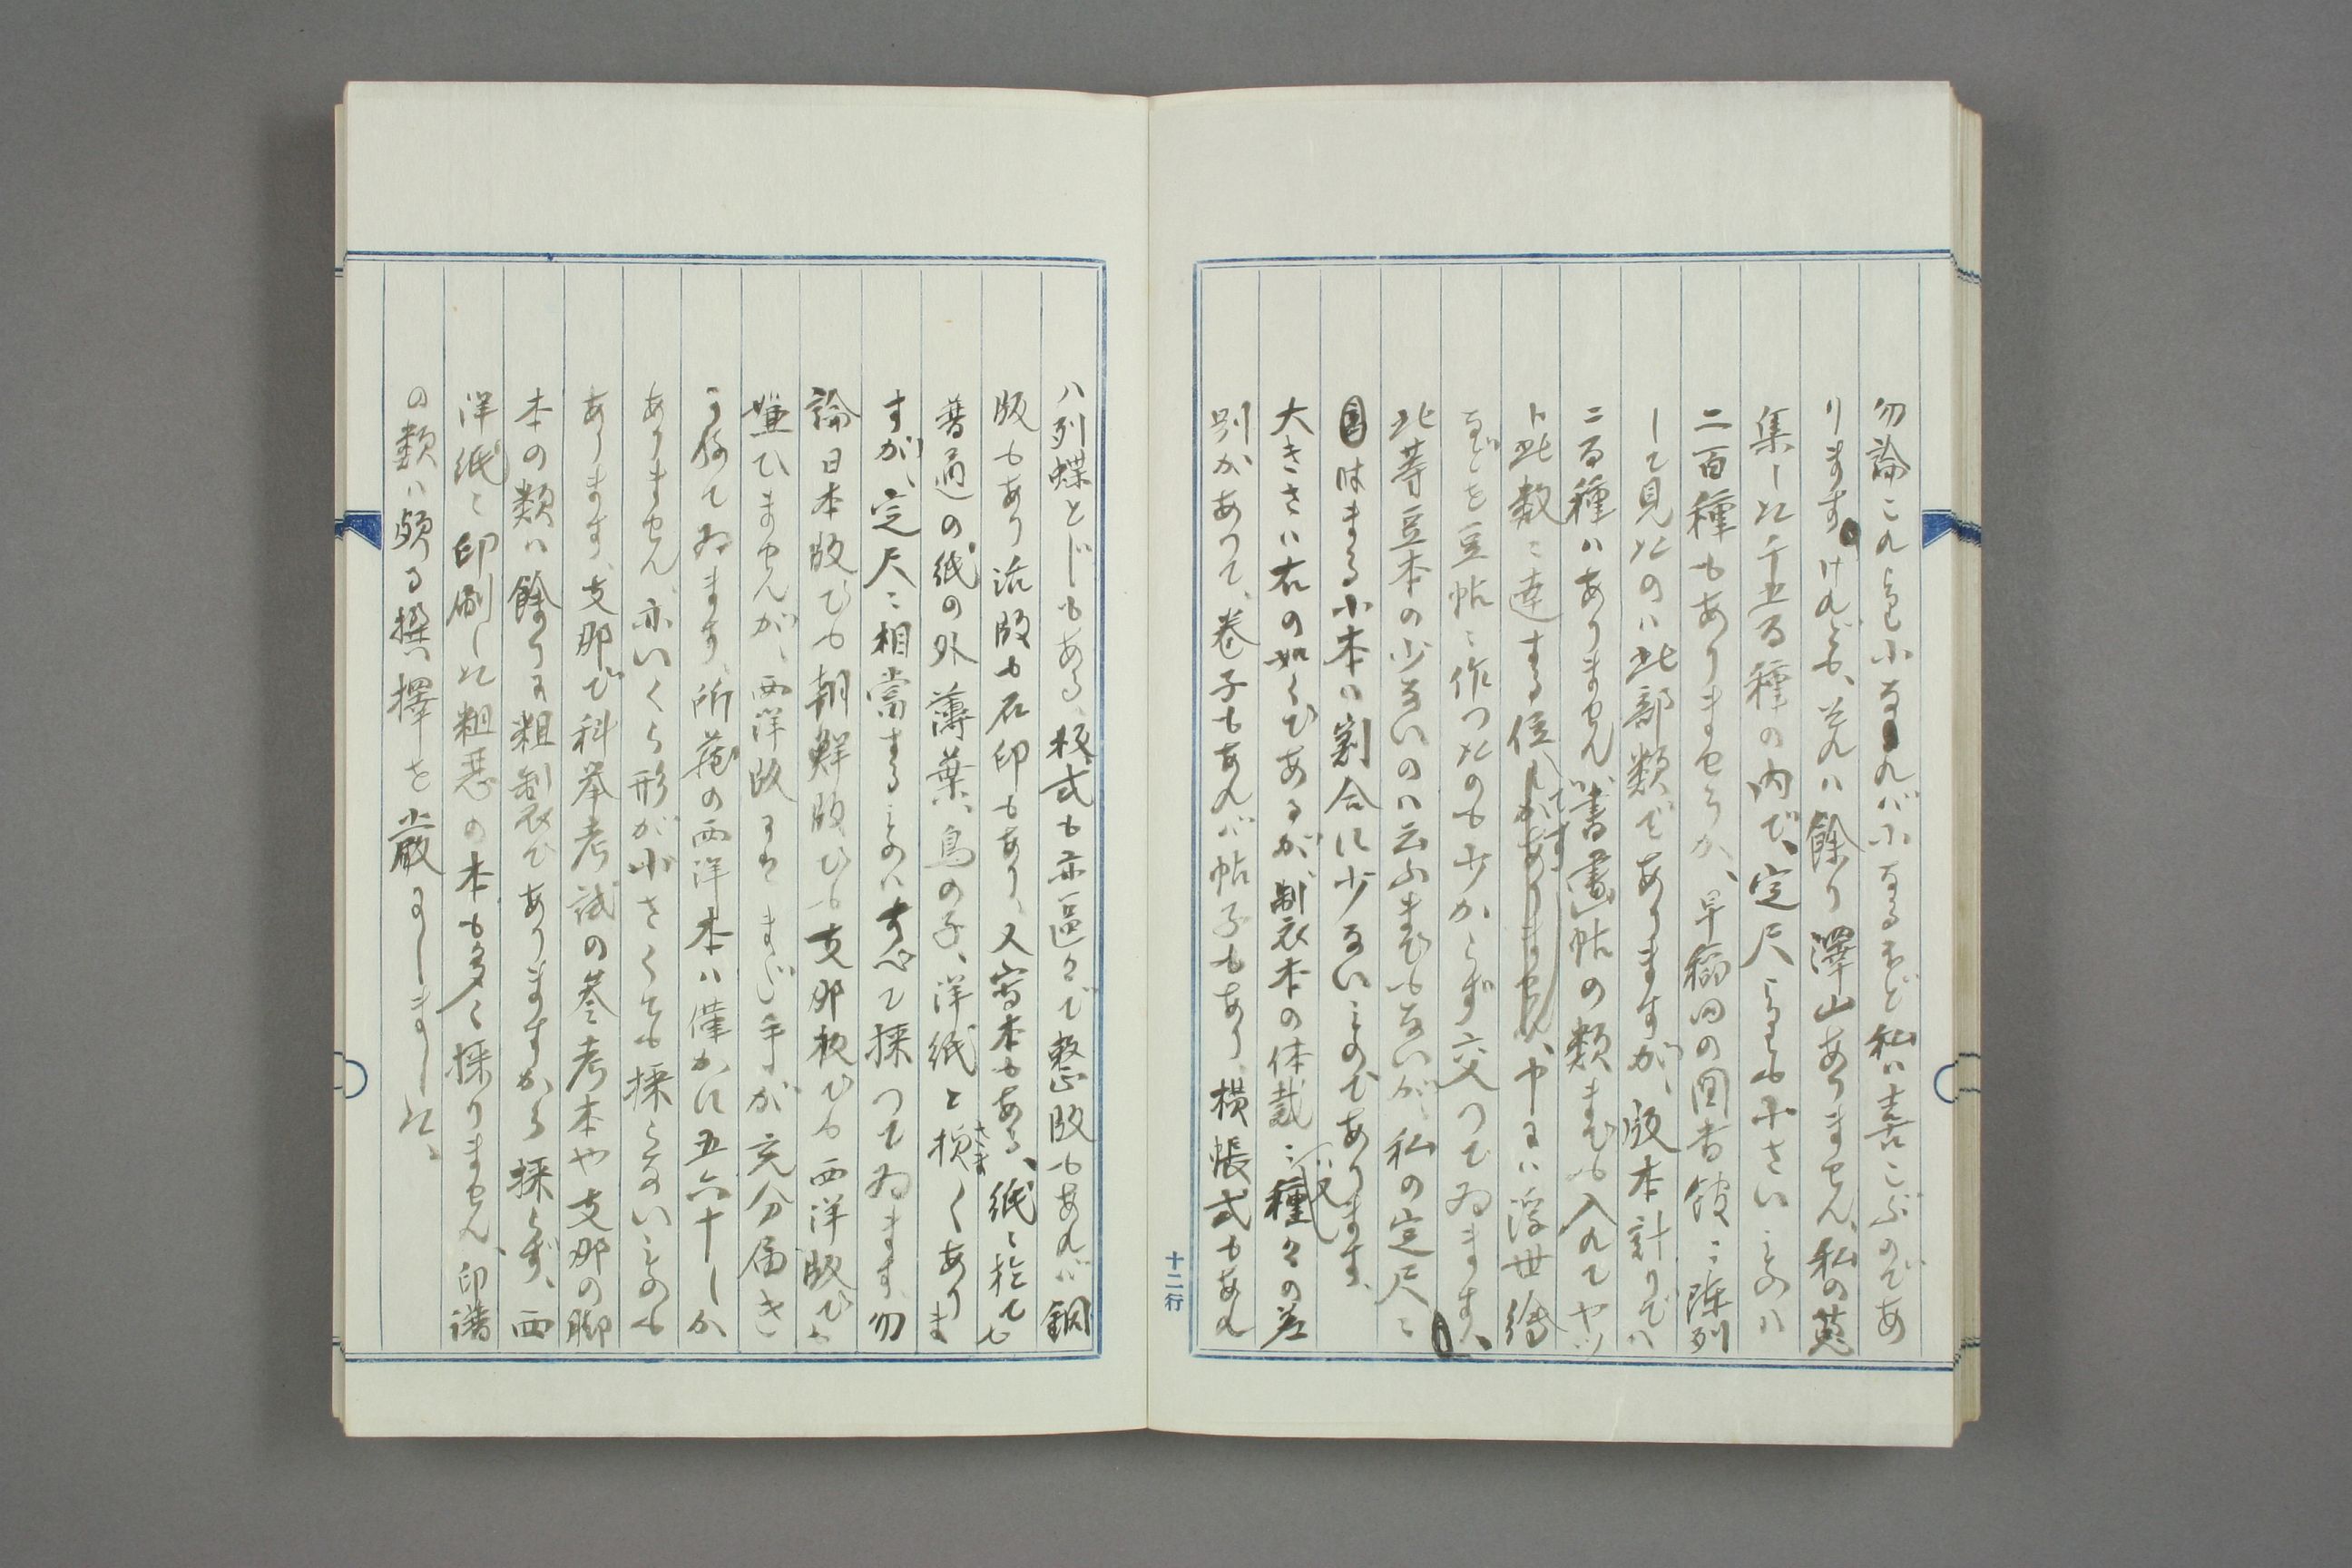 勿論これも小なれバ小なるほど私ハ喜こぶのであ
りますけれども、それハ餘り澤山ありません、私の蒐
集した千五百種の内で、定尺よりも小さいものハ
二百種もありませうか、早稲田の図書館に陳列
して見たのハ此部類でありますが、版本計りでハ
二百種ハありませんが書画帖の類までも入れてヤツ
ト此数に達する位です、中にハ浮世繪
などを豆帖に作つたのも少からず交つてゐます、
此等豆本の少ないのハ云ふまでもないが、私の定尺に
はまる小本ハ割合に少ないものであります、
大きさハ右の如くであるが、製本の体裁に種々の差
別があつて、巻子もあれバ帖子もあり、横帳式もあれ
バ列蝶とじもある、板式も亦區々で整版もあれバ銅
版もあり活版も石印もあり、又寫本もある、紙に於ても
普通の紙の外薄葉、鳥の子、洋紙と様〻さまくあります
すが、定尺に相當するものハすべて採つてゐます、勿
論日本版でも朝鮮版でも支那板でも西洋版でも
嫌ひませんが、西洋版にハまだ手が充分届き
兼ねてゐます、所蔵の西洋本ハ僅かに五六十しか
ありません、亦いくら形が小さくても採らないものも
あります、支那で科挙考試の参考本や支那の脚
本の類ハ餘りに粗製でありますから採らず、西
洋紙に印刷した粗悪の本も多く採りません、印譜
の類ハ頗る撰擇を嚴にしました。
十二行